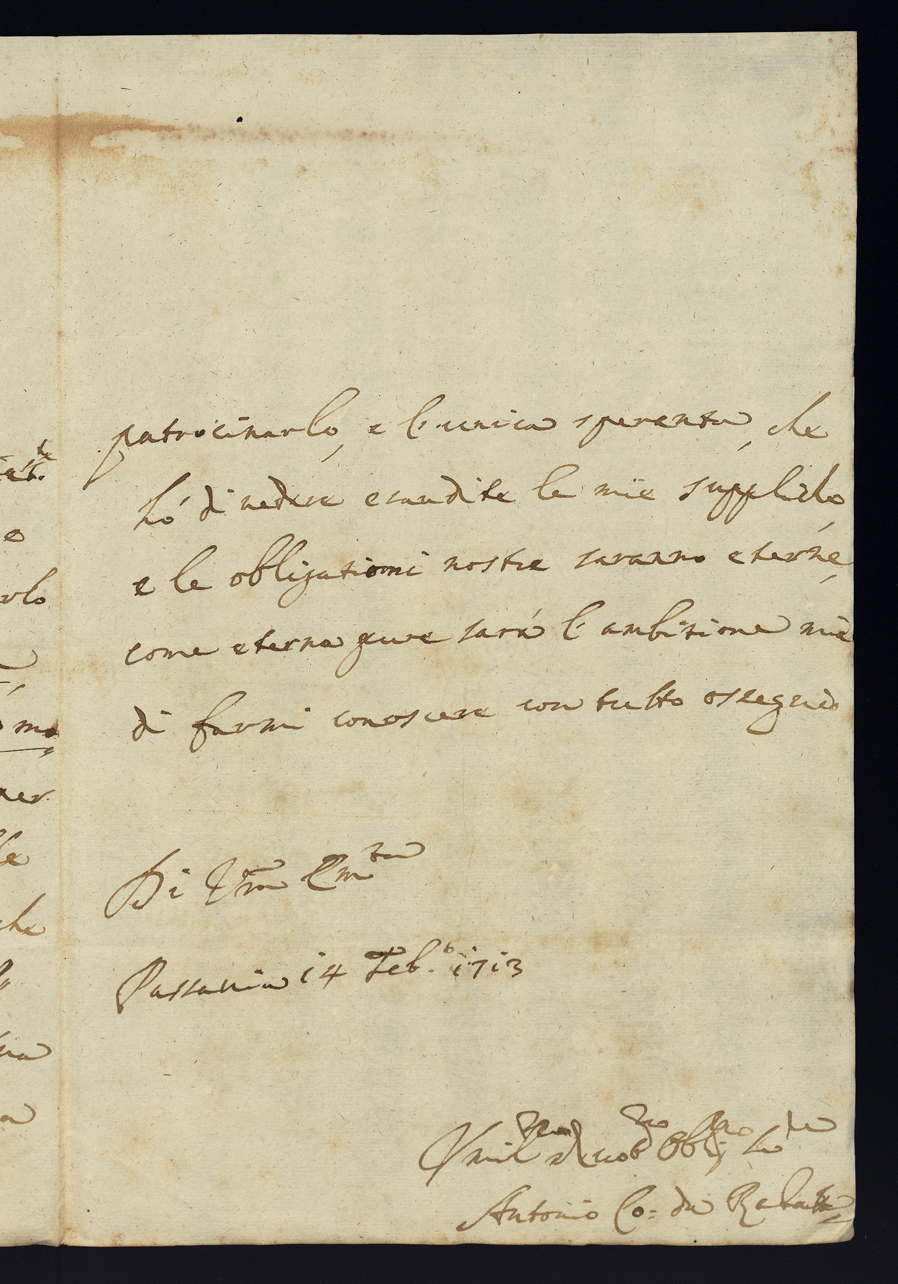 patrocinarlo, e l'unica speranza, che
hó di vedere esaudite le mie suppliche,
e le obligationi nostre saranno eterne,
come eterna pure sará l'ambitione mia
di farmi conoscere con tutto ossequio
Di Vra Emza
Passavia 14 Feb.º 1713
Umil
Antonio Co: de Rabatta
ab.te
o
rlo
mo
per
le
che
a